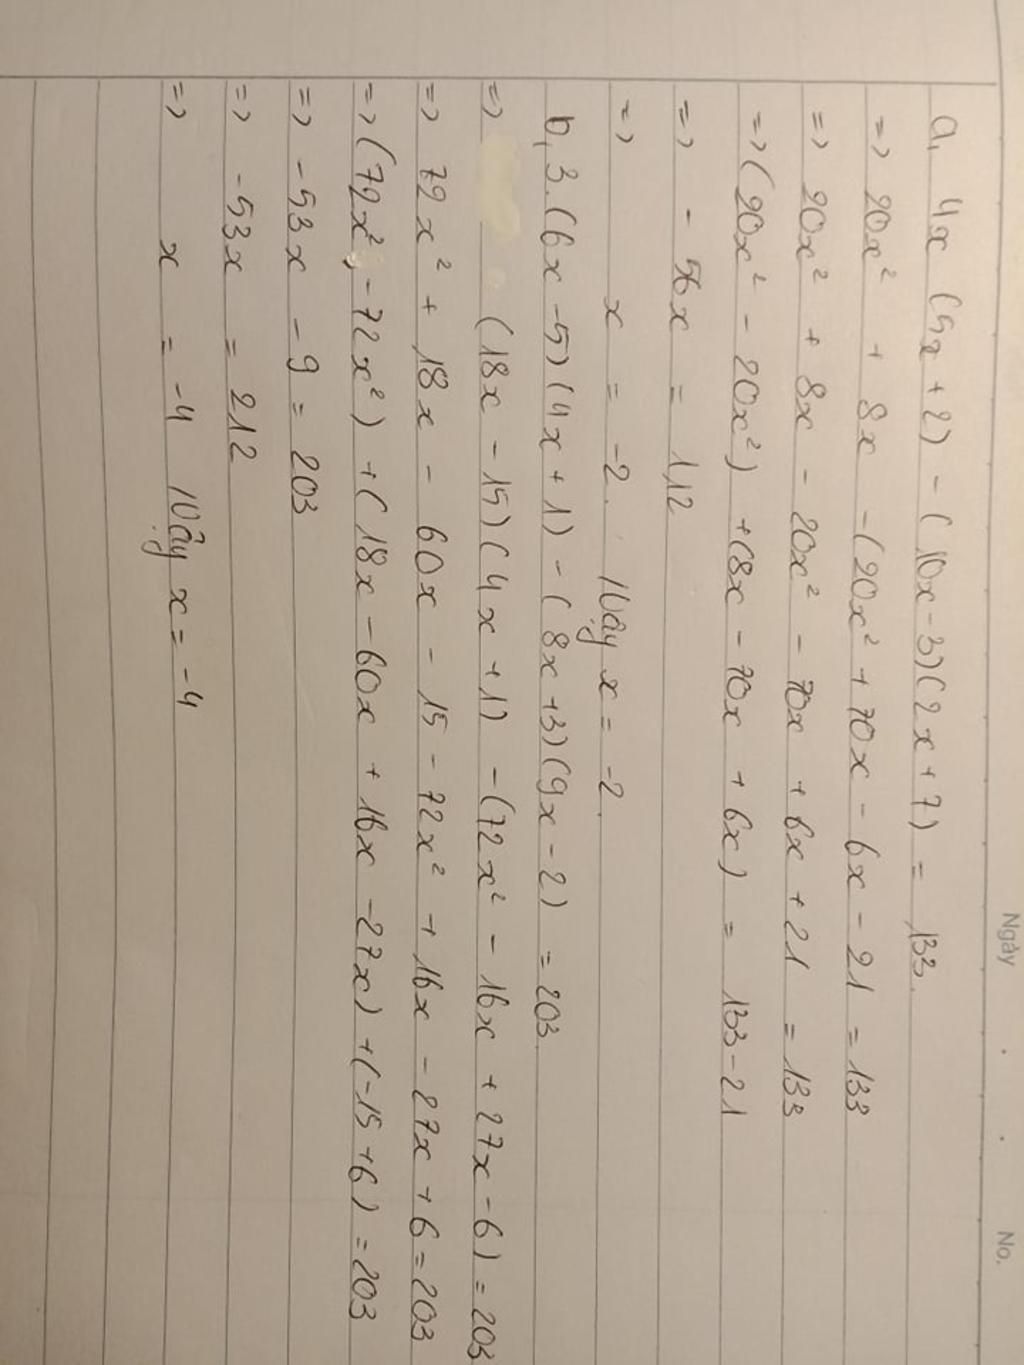 Ngày No.
a, 4x (5x + 2) - (10x - 3)(2x + 7) = 133.
=> 20x² + 8x - (20x² + 70x - 6x - 21 = 133
=> 20x² + 8x - 20x² - 70x + 6x + 21 = 133
=> (20x² - 20x²) + (8x - 70x + 6x) = 133 - 21
=> - 56x = 112
=> x = -2. Vậy x = -2.
b, 3.(6x - 5)(4x + 1) - (8x + 3)(9x - 2) = 203
=> (18x - 15)(4x + 1) - (72x² - 16x + 27x - 6) = 203
=> 72x² + 18x - 60x - 15 - 72x² + 16x - 27x + 6 = 203
=> (72x² - 72x²) + (18x - 60x + 16x - 27x) + (-15 + 6) = 203
=> - 53x - 9 = 203
=> -53x = 212
=> x = -4 Vậy x = -4